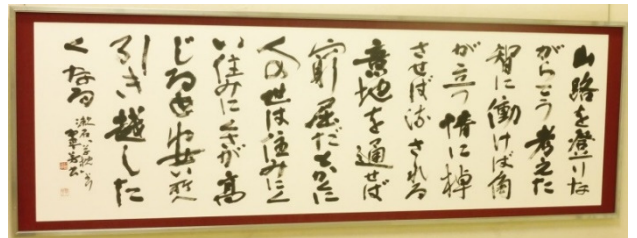 山路を登りな
がらこう考えた
智に働けば角
が立つ情に棹
させば流される
意地を通せば
窮屈だとかくに
人の世は住みにく
い住みにくさが高
じると安い所へ
引き越した
くなる
漱石草枕より